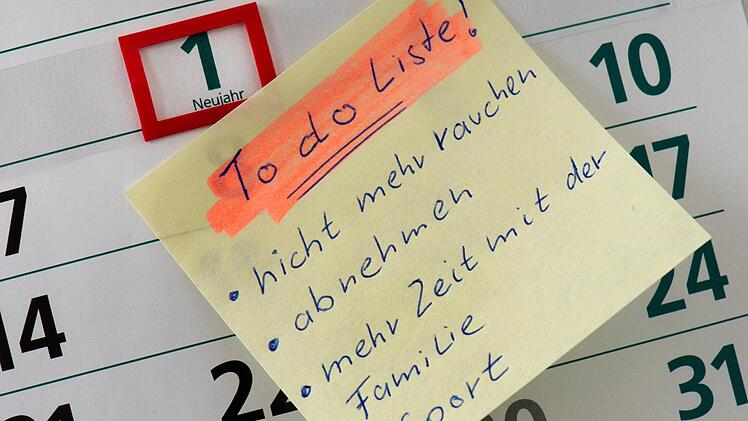 1
Neujahr
To do Liste!
• nicht mehr rauchen
• abnehmen
• mehr Zeit mit der
Familie
Sport
10
7
17
14
24
31